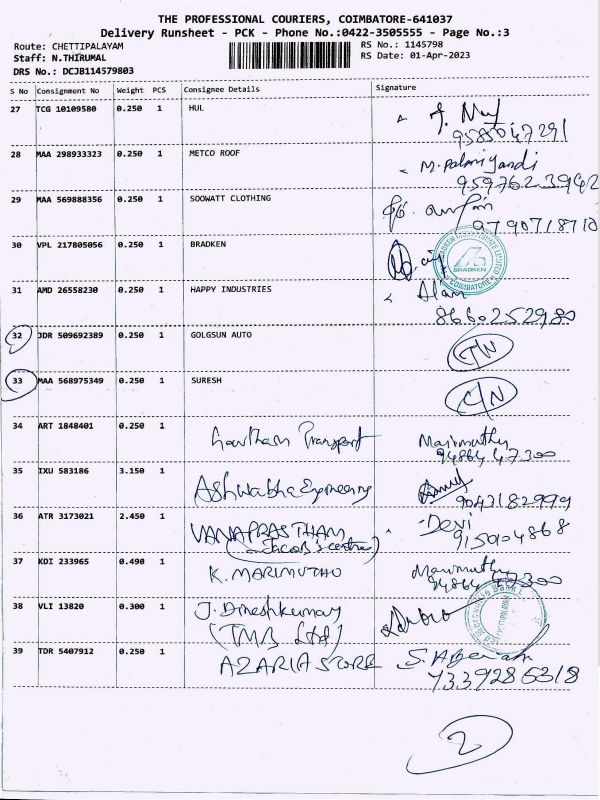 THE PROFESSIONAL COURIERS, COIMBATORE-641037
Delivery Runsheet - PCK - Phone No.:0422-3505555 - Page No.:3
Route: CHETTIPALAYAM RS No.: 1145798
Staff: N.THIRUMAL RS Date: 01-Apr-2023
DRS No.: DCJB114579803
S No Consignment No Weight PCS Consignee Details Signature
27 TCG 10109580 0.250 1 HUL
9585047291
28 MAA 298933323 0.250 1 METCO ROOF M. Palaniyandi
9597623942
29 MAA 569888356 0.250 1 SOOWATT CLOTHING
9790718710
30 VPL 217805056 0.250 1 BRADKEN
BRADKEN
COIMBATORE
31 AMD 26558230 0.250 1 HAPPY INDUSTRIES Alan
8660252980
32 JDR 509692389 0.250 1 GOLGSUN AUTO
33 MAA 568975349 0.250 1 SURESH
34 ART 1848401 0.250 1 Gowtham Transport Marimuthu
94864 47300
35 IXU 583186 3.150 1 Ashwabha Engineering
9043182999
36 ATR 3173021 2.450 1 VANAPRASTHAM Devi
(Jacob's centre) 9150104868
37 KDI 233965 0.490 1 K. MARIMUTHU Marimuthu
94864 47300
38 VLI 13820 0.300 1 J. Dineshkumar
(TMB Ltd)
39 TDR 5407912 0.250 1 AZARIA STORE
7339286318
2